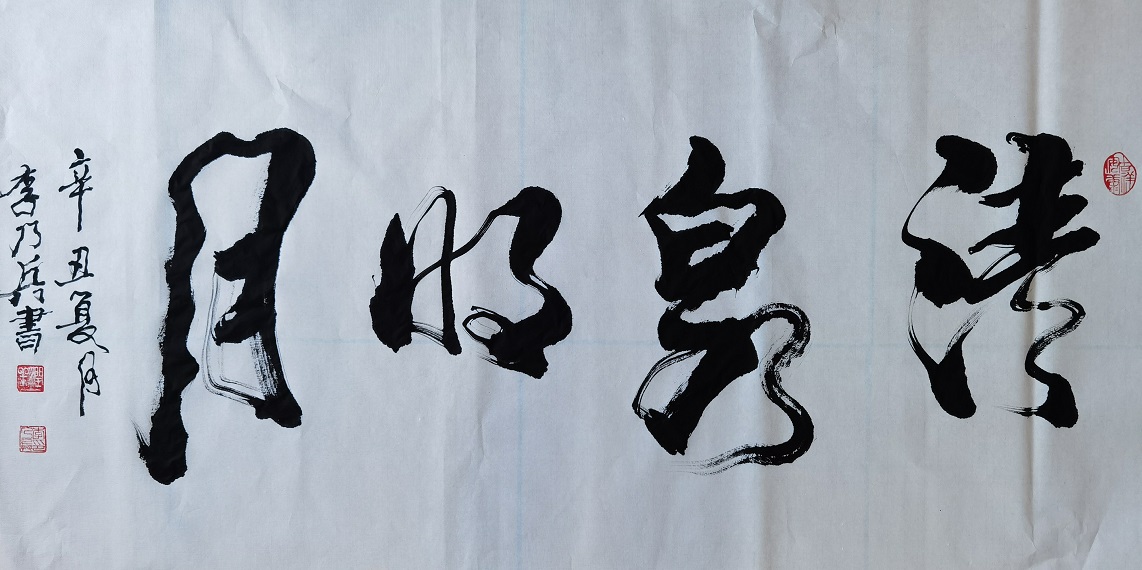 清泉明月
辛丑夏月
李乃兵書